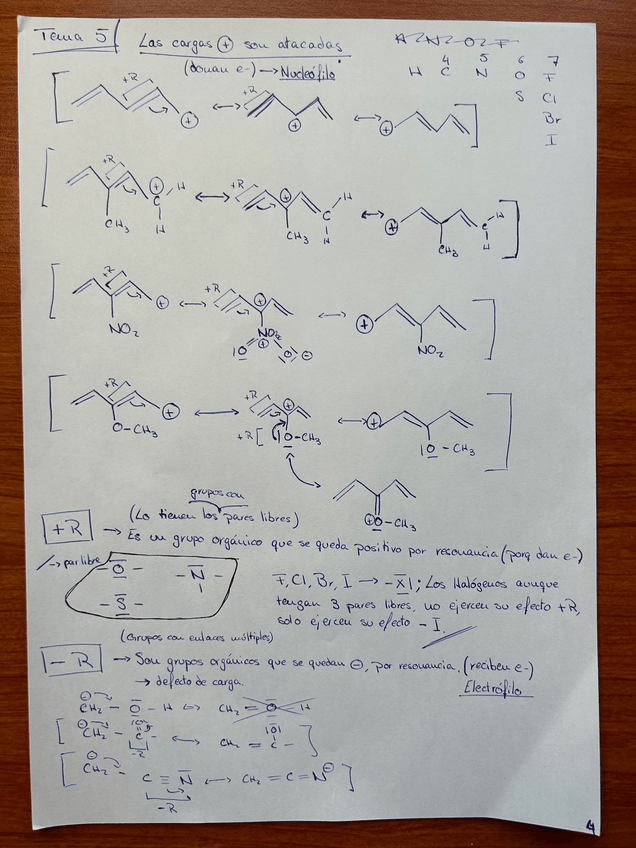 Tema 5
Las cargas ⊕ son atacadas
(donan e-) → Nucleófilo
4 5 6 7
H C N O F
S Cl
Br
I
[ +R ⊕ ↔ +R ⊕ ↔ ⊕ ]
[ +R ⊕ C H ↔ +R ⊕ C H ↔ ⊕ C H ]
CH3 H CH3 H CH3 H
[ +R ⊕ ↔ +R ⊕ ↔ ⊕ ]
NO2 NO2 NO2
⊕
|O O ⊖
[ +R ⊕ ↔ +R ⊕ ↔ ⊕ ]
O-CH3 +R[ |O-CH3 |O-CH3
⊕O-CH3
grupos con
(Lo tienen los pares libres)
+R → Es un grupo orgánico que se queda positivo por resonancia (porq dan e-)
/→ par libre
-O- -N-
-S-
F, Cl, Br, I → -X|; Los Halógenos aunque
tengan 3 pares libres, no ejercen su efecto +R,
solo ejercen su efecto -I.
(Grupos con enlaces múltiples)
-R → Son grupos orgánicos que se quedan ⊖, por resonancia. (reciben e-)
→ defecto de carga. Electrófilo
⊖
CH2 - O - H ↔ CH2 = O H
⊖ |O| |O|
[ CH2 - C - ↔ CH2 = C - ]
-R
⊖
[ CH2 - C ≡ N ↔ CH2 = C = N ⊖ ]
-R